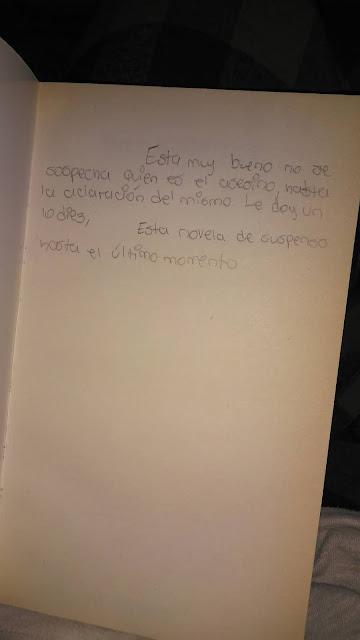 Esta muy bueno no se
sospecha quien es el acesino, hasta
la aclaración del mismo Le doy un
10 dies,
Esta novela de suspenso
hasta el último momento